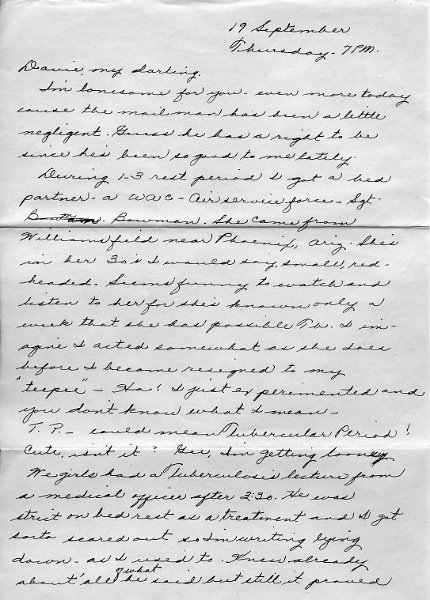 19 September
Thursday - 7 P.M.
Davie, my darling.
I'm lonesome for you - even more today
cause the mailman has been a little
negligent. Guess he has a right to be
since he's been so good to me lately.
During 1-3 rest period I got a bed
partner - a WAC - Air service force - Sgt.
Bowman. She came from
Williams field near Phoenix, Ariz. She's
in her 30's I would say, small, red-
headed. Seems funny to watch and
listen to her for she's known only a
week that she has possible Tb. I im-
agine I acted somewhat as she does
before I became resigned to my
"teepee" - Ha! I just experimented and
you don't know what I mean -
T. P. - could mean Tubercular Period!
Cute, isn't it? Gee, I'm getting looney
We girls had a Tuberculosis lecture from
a medical officer after 2:30. He was
strict on bed rest as a treatment and I got
sorta scared out so I'm writing lying
down - as I used to. Knew already
about all of what he said but still it proved